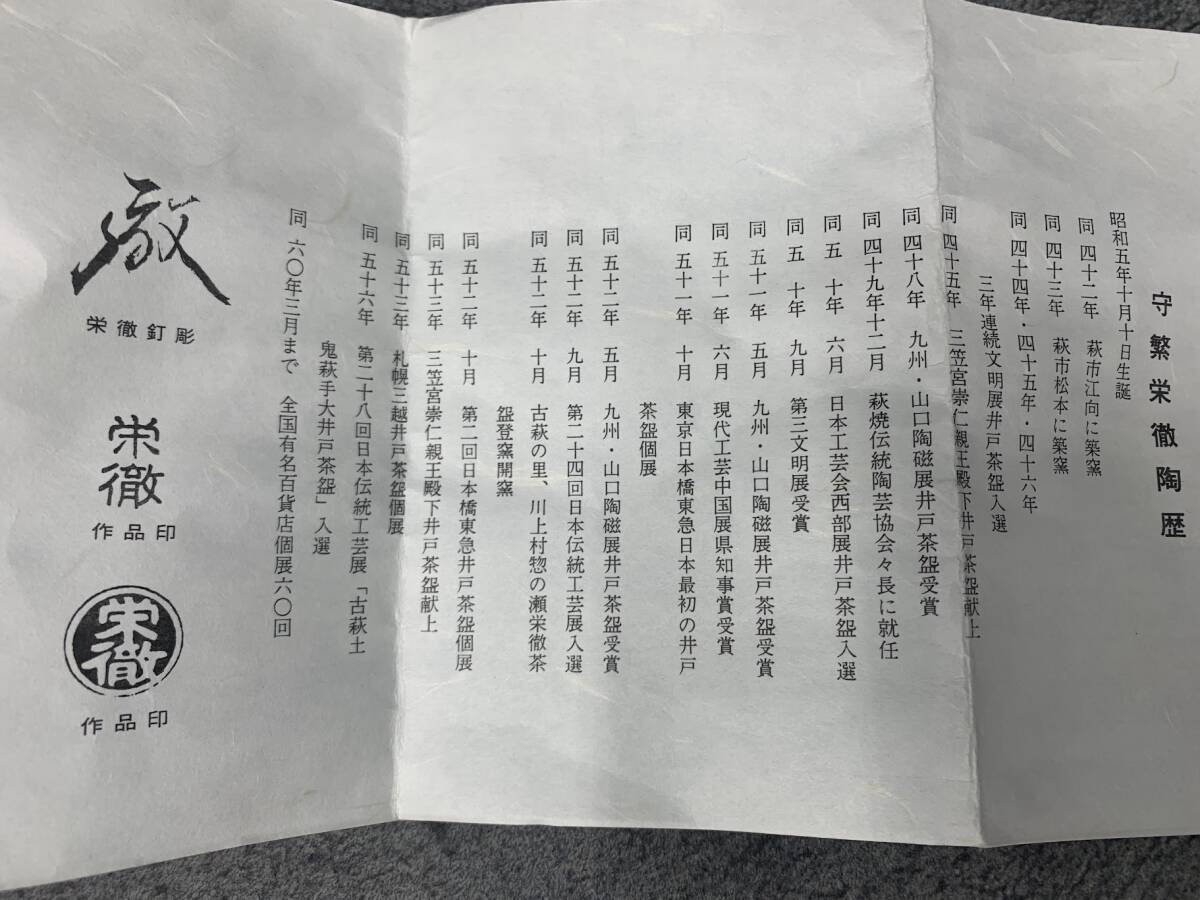 守繁栄徹陶歴
昭和五年十月十日生誕
同 四十二年 萩市江向に築窯
同 四十三年 萩市松本に築窯
同 四十四年・四十五年・四十六年
三年連続文明展井戸茶盌入選
同 四十五年 三笠宮崇仁親王殿下井戸茶盌献上
同 四十八年 九州・山口陶磁展井戸茶盌受賞
同 四十九年十二月 萩焼伝統陶芸協会々長に就任
同 五十年 六月 日本工芸会西部展井戸茶盌入選
同 五十年 九月 第三文明展受賞
同 五十一年 五月 九州・山口陶磁展井戸茶盌受賞
同 五十一年 六月 現代工芸中国展県知事賞受賞
同 五十一年 十月 東京日本橋東急日本最初の井戸
茶盌個展
同 五十二年 五月 九州・山口陶磁展井戸茶盌受賞
同 五十二年 九月 第二十四回日本伝統工芸展入選
同 五十二年 十月 古萩の里、川上村惣の瀬栄徹茶
盌登窯開窯
同 五十二年 十月 第二回日本橋東急井戸茶盌個展
同 五十三年 三笠宮崇仁親王殿下井戸茶盌献上
同 五十三年 札幌三越井戸茶盌個展
同 五十六年 第二十八回日本伝統工芸展「古萩土
鬼萩手大井戸茶盌」入選
同 六〇年三月まで 全国有名百貨店個展六〇回
栄徹釘彫
栄徹
作品印
栄徹
作品印